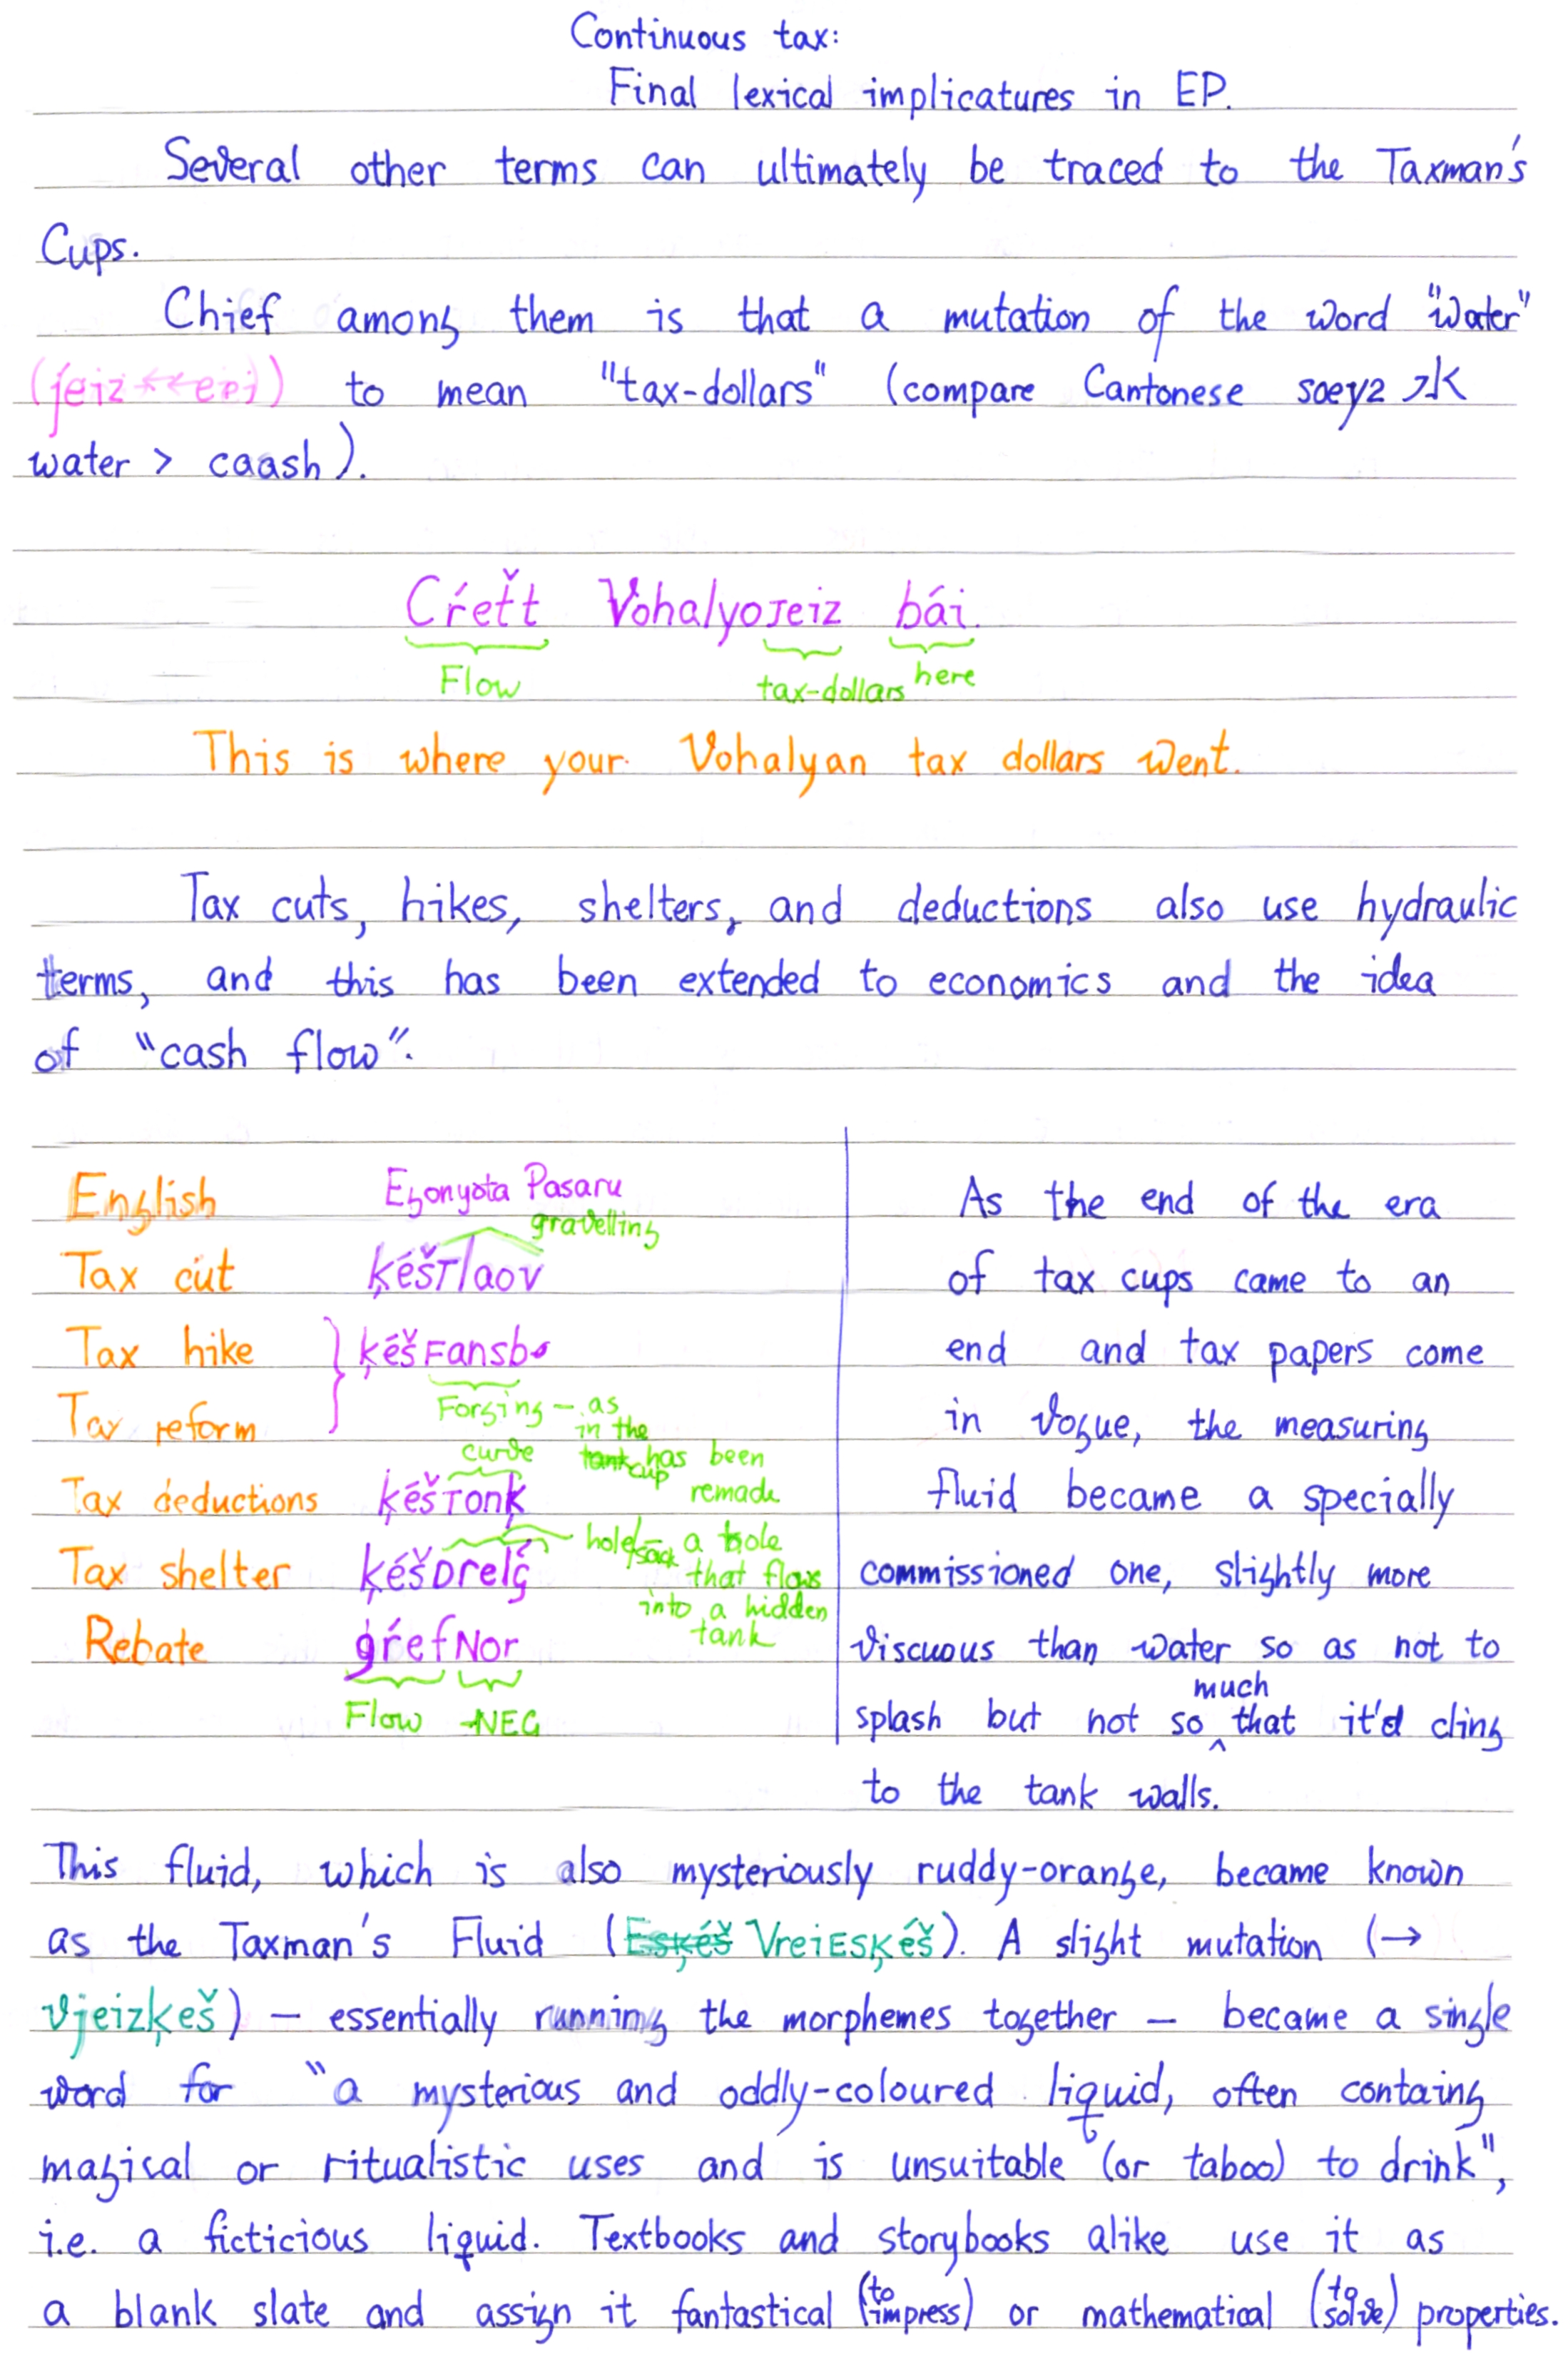 Continuous tax:
Final lexical implicatures in EP.
Several other terms can ultimately be traced to the Taxman's
Cups.
Chief among them is that a mutation of the word "water"
(jeiz << epj) to mean "tax-dollars" (compare Cantonese soey2 水
water > caash).
Cŕeťt Vohalyojeiz bái.
Flow tax-dollars here
This is where your Vohalyan tax dollars went.
Tax cuts, hikes, shelters, and deductions also use hydraulic
terms, and this has been extended to economics and the idea
of "cash flow".
English Egonyota Pasaru
gravelling
Tax cut ķéšTlaov
Tax hike ķéšFansb
Tax reform
Forging – as in the cup has been remade
curve
Tax deductions ķéšTonķ
Tax shelter ķéšDrelģ
hole/sack – a hole that flows into a hidden tank
Rebate ģŕefNor
Flow -NEG
As the end of the era
of tax cups came to an
end and tax papers come
in vogue, the measuring
fluid became a specially
commissioned one, slightly more
viscuous than water so as not to
splash but not so much that it'd cling
to the tank walls.
This fluid, which is also mysteriously ruddy-orange, became known
as the Taxman's Fluid (Esķéš VreiEsķéš). A slight mutation (→
vjeizķeš) – essentially running the morphemes together – became a single
word for "a mysterious and oddly-coloured liquid, often containg
magical or ritualistic uses and is unsuitable (or taboo) to drink",
i.e. a ficticious liquid. Textbooks and storybooks alike use it as
a blank slate and assign it fantastical (to impress) or mathematical (to solve) properties.